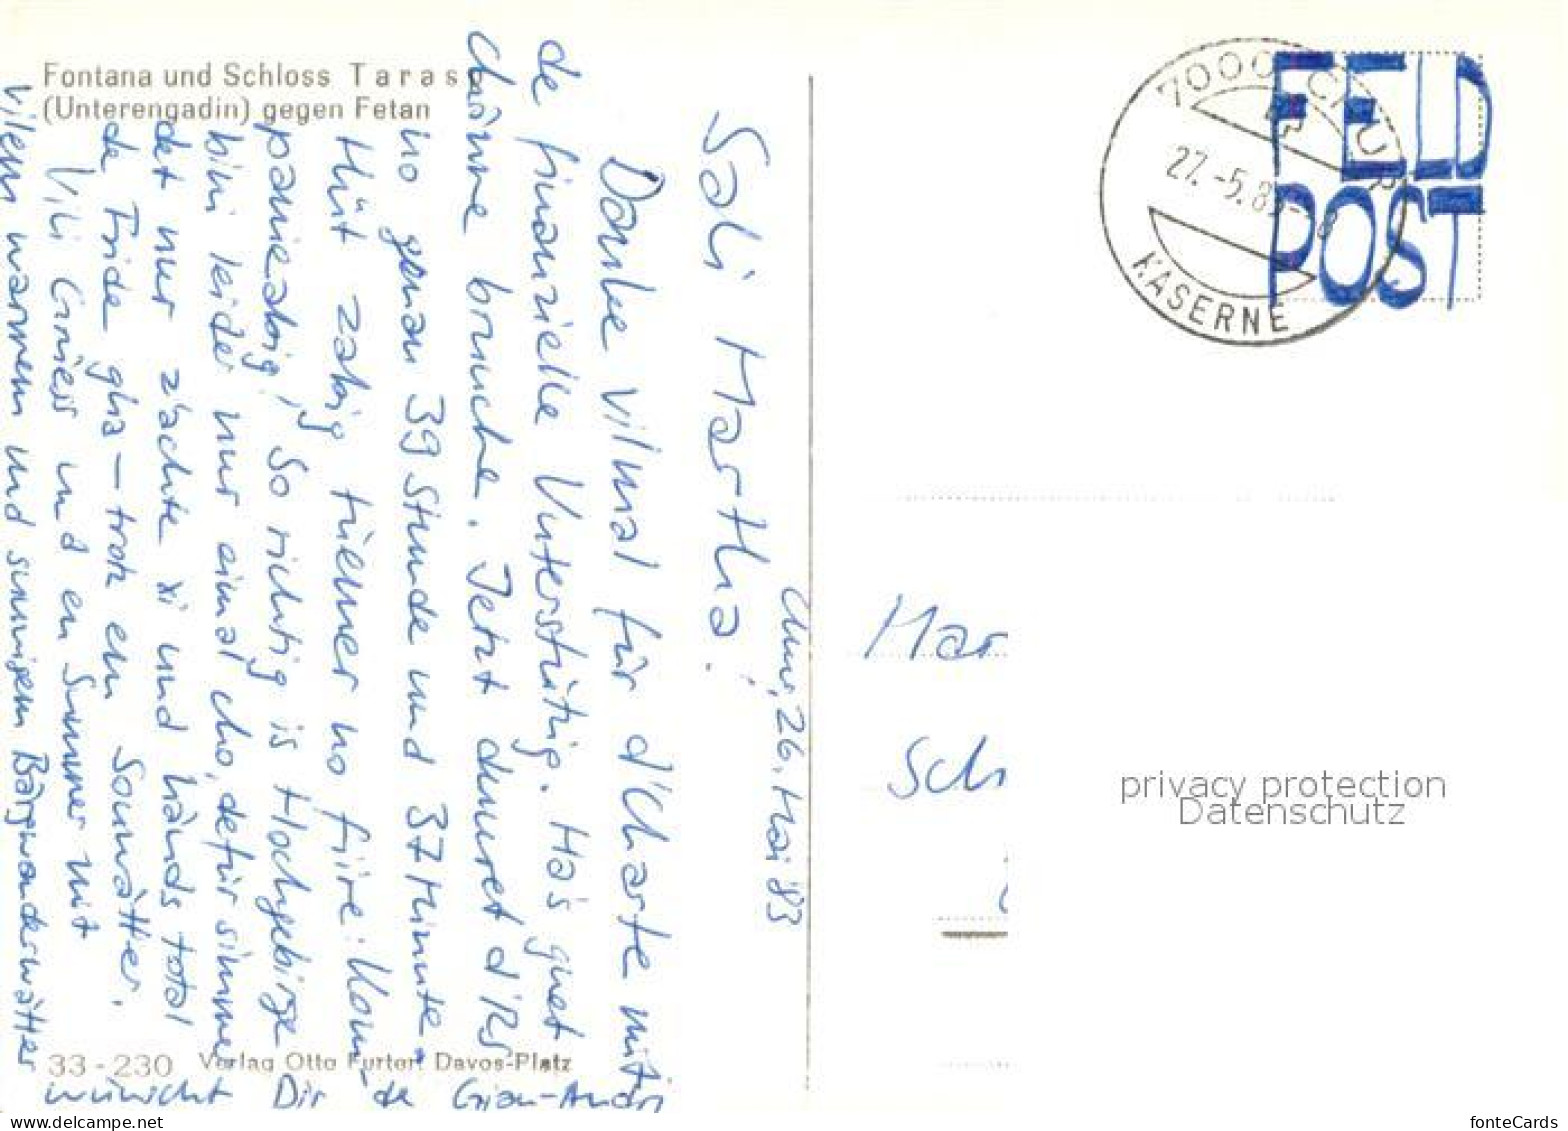 Fontana und Schloss Taras
(Unterengadin) gegen Fetan
7000 CHUR
27.-5.83-8
KASERNE
FELD
POST
Chur, 26. Mai 83
Sali Martha!
Danke vilmal für d'Charte mit
de finanzielle Unterstützig. Has guet
chönne bruuche. Jetzt duuret d'RS
no genau 39 Stunde und 37 Minute.
Hüt zabig tüemer no fiire: Kom-
panieabig! So richtig is Hochgebirge
bini leider nur eimal cho, defür simmer
det nur z'achte xi und händs total
de Fride gha – trotz em Souwätter.
Vili Grüess und en Summer mit
vilem warmem und sunnigem Bärgwanderwätter
wünscht Dir de Gian-Andri
Mar
Sch
33-230 Verlag Otto Furter, Davos-Platz
privacy protection
Datenschutz
www.delcampe.net
fonteCards